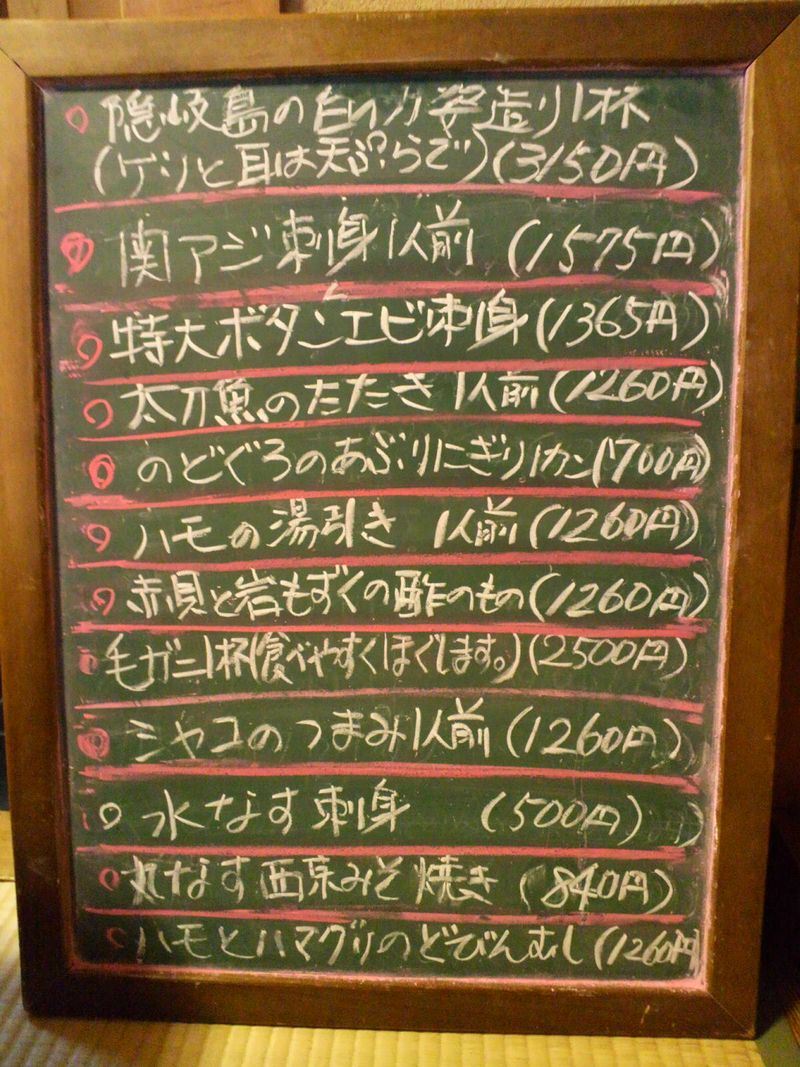 隠岐島の白いカ姿造り1杯
(ゲソと耳は天ぷらで)(3150円)
関アジ刺身1人前(1575円)
特大ボタンエビ刺身(1365円)
太刀魚のたたき1人前(1260円)
のどぐろのあぶりにぎり1カン(700円)
ハモの湯引き 1人前(1260円)
赤貝と岩もずくの酢のもの(1260円)
毛ガニ1杯(食べやすくほぐします。)(2500円)
シャコのつまみ1人前(1260円)
水なす刺身 (500円)
丸なす西京みそ焼き(840円)
ハモとハマグリのどびんむし(1260円)